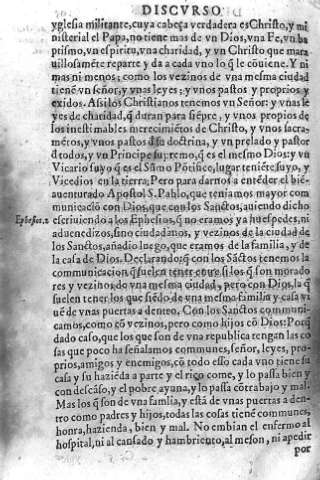 DISCVRSO
yglesia militante, cuya cabeça verdadera es Christo, y mi
nisterial el Papa, no tiene mas de vn Dios, vna Fe, vn ba
ptismo, vn espiritu, vna charidad, y vn Christo que mara
uillosamẽte reparte y da a cada vno lo q̃ le cõuiene. Y ni
mas ni menos: como los vezinos de vna mesma ciudad
tienẽ vn señor, y vnas leyes: y vnos pastos y proprios y
exidos. Assi los Christianos tenemos vn Señor: y vnas le
yes de charidad, q̃ duran para siẽpre, y vnos propios de
los inestimables merecimiẽtos de Christo, y vnos sacra-
mẽtos, y vnos pastos d̃ su doctrina, y vn prelado y pastor
d̃ todos, y vn Principe supremo, q̃ es el mesmo Dios: y vn
Vicario suyo q̃ es el Sũmo Põtifice, lugar teniẽte suyo, y
Vicedios en la tierra. Pero para darnos a entẽder el biẽ-
auenturado Apostol S. Pablo, que teniamos mayor com
municaciõ con Dios, que con los Sanctos, auiendo dicho
Ephesos.2 escriuiendo a los Ephesios, q̃ no eramos ya huespedes, ni
aduenedizos, sino ciudadanos, y vezinos de la ciudad de
los Sanctos, añadio luego, que eramos de la familia, y de
la casa de Dios. Declarando: q̃ con los Sãctos tenemos la
communicacion q̃ suelen tener entre si los q̃ son morado
res y vezinos de vna mesma ciudad, pero con Dios, la q̃
suelen tener los que siẽdo de vna mesma familia y casa vi
uẽ de vnas puertas a dentro. Con los Sanctos communi-
camos, como cõ vezinos, pero como hijos cõ Dios: Porq̃
dado caso, que los que son de vna republica tengan las co
sas que poco ha señalamos communes, señor, leyes, pro-
prios, amigos y enemigos, cõ todo esso cada vno tiene su
casa y su haziẽda a parte y el rico come, y lo passa bien y
con descãso, y el pobre ayuna, y lo passa cõ trabajo y mal.
Mas los q̃ son de vna familia, y estã de vnas puertas a den-
tro como padres y hijos, todas las cosas tienẽ communes,
honra, hazienda, bien y mal. No embian el enfermo al
hospital, ni al cansado y hambriento, al meson, ni a pedir
por